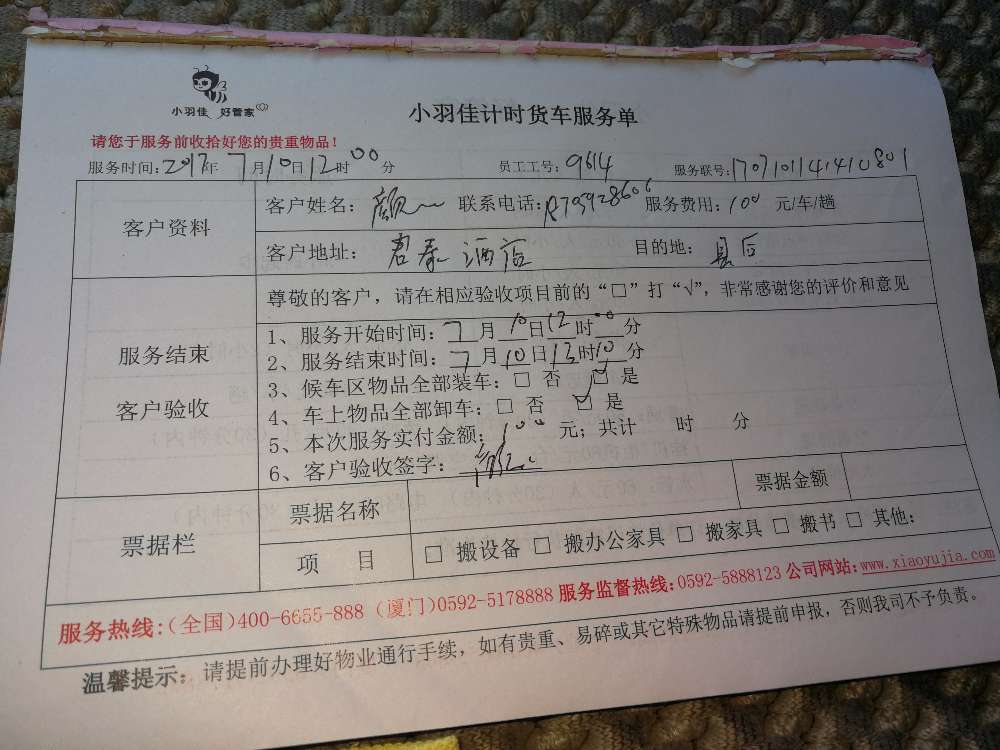 小羽佳 好管家
小羽佳计时货车服务单
请您于服务前收拾好您的贵重物品！
服务时间：2017年7月10日12时00分 员工工号：9614 服务联号：170710141410801
客户资料
客户姓名：颜 联系电话： 服务费用：100 元/车/趟
客户地址：君泰酒店 目的地：县后
服务结束
客户验收
尊敬的客户，请在相应验收项目前的“□”打“√”，非常感谢您的评价和意见
1、服务开始时间：7月10日12时00分
2、服务结束时间：7月10日13时10分
3、候车区物品全部装车：□ 否 ☑ 是
4、车上物品全部卸车：□ 否 ☑ 是
5、本次服务实付金额：100元；共计 时 分
6、客户验收签字：
票据栏
票据名称 票据金额
项 目 □ 搬设备 □ 搬办公家具 □ 搬家具 □ 搬书 □ 其他：
服务热线：（全国）400-6655-888（厦门）0592-5178888 服务监督热线：0592-5888123 公司网站：www.xiaoyujia.com
温馨提示：请提前办理好物业通行手续，如有贵重、易碎或其它特殊物品请提前申报，否则我司不予负责。